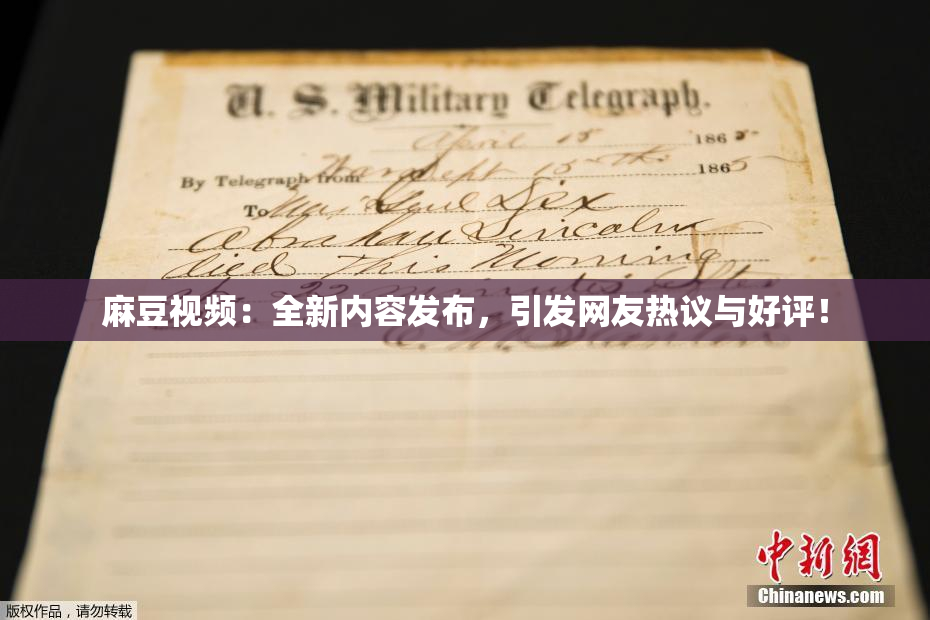 U. S. Military Telegraph.
April 15 1865
By Telegraph from War Dept 15th 1865
To Maj Genl Dix
Abraham Lincoln
died This Morning
at 22 minutes after
麻豆视频：全新内容发布，引发网友热议与好评！
E. M. Stanton
中新网
Chinanews.com
版权作品，请勿转载